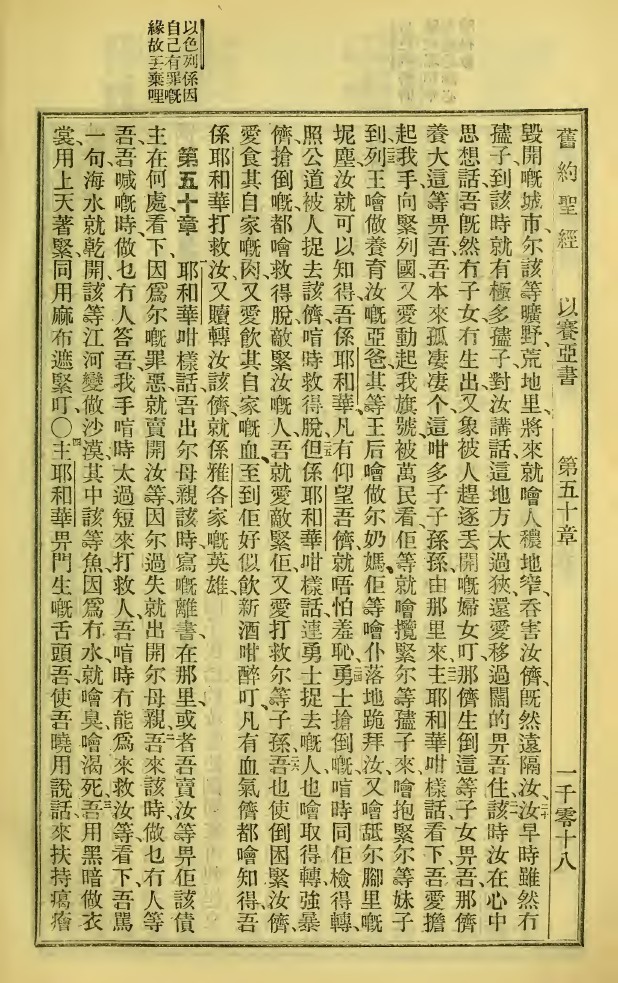 舊約聖經　以賽亞書　第五十章　一千零十八
毀開嘅城市、尔該等曠野、荒地里、將來就噲人穠地窄、吞害汝儕、旣然遠隔汝、二十汝早時雖然冇
孻子、到該時就有極多孻子、對汝講話、這地方太過狹、還愛移過闊的畀吾住、二一該時汝在心中
思想話、吾旣然冇子女、冇生出、又象被人趕逐丟開嘅婦女叮、那儕生倒這等子女畀吾、那儕
養大這等畀吾、吾本來孤凄凄个、這咁多子子孫孫由那里來、二二主耶和華咁樣話、看下、吾愛擔
起我手、向緊列國、又愛動起我旗號被萬民看、佢等就噲攬緊尔等孻子來、噲抱緊尔等妹子
到、二三列王噲做養育汝嘅亞爸、其等王后噲做尔奶媽、佢等噲仆落地跪拜汝、又噲舐尔腳里嘅
坭塵、汝就可以知得、吾係耶和華、凡有仰望吾儕、就唔怕羞恥、二四勇士搶倒嘅、喑時同佢檢得轉、
照公道被人捉去該儕、喑時救得脫、二五但係耶和華咁樣話、連勇士捉去嘅人也噲取得轉、強暴
儕搶倒嘅都噲救得脫、敵緊汝嘅人、吾就愛敵緊佢、又愛打救尔等子孫、二六吾也使倒困緊汝儕、
愛食其自家嘅肉、又愛飲其自家嘅血、至到佢好似飲新酒咁醉叮、凡有血氣儕都噲知得、吾
係耶和華打救汝、又贖轉汝該儕、就係雅各家嘅英雄、
第五十章　一耶和華咁樣話、吾出尔母親該時寫嘅離書在那里、或者吾賣汝等畀佢該債
主在何處、看下、因爲尔嘅罪惡、就賣開汝等、因尔過失、就出開尔母親、二吾來該時、做乜冇人等
吾、吾喊嘅時、做乜冇人答吾、我手喑時太過短來打救人、吾喑時冇能爲來救汝等、看下、吾罵
一句、海水就乾開、該等江河變做沙漠、其中該等魚因爲冇水、就噲臭、噲渴死、三吾用黑暗做衣
裳、用上天著緊、同用麻布遮緊叮、〇四主耶和華畀門生嘅舌頭吾、使吾曉用說話來扶持癘癐
以色列係因
自己有罪嘅
緣故丟棄哩